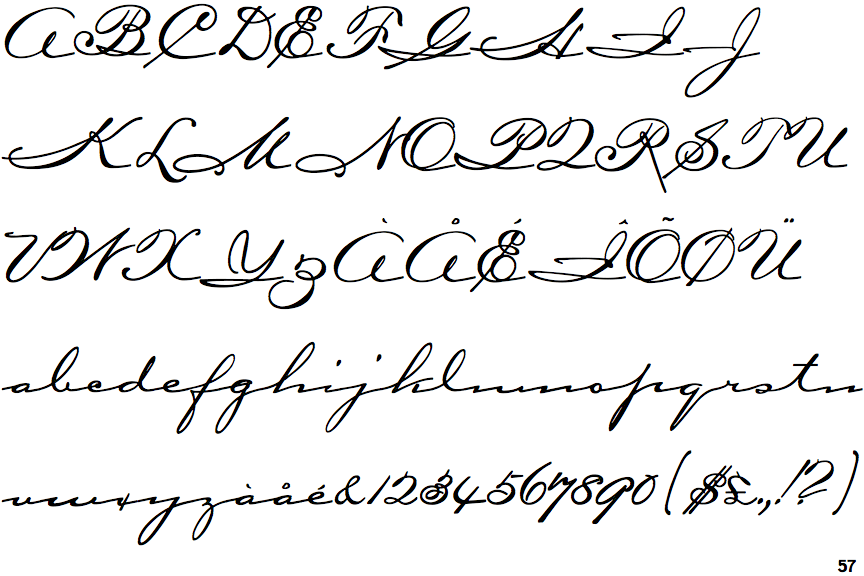 ABCDEFGHIJ
KLMNOPQRSTU
VWXYZÀÅÉÎÕØÜ
abcdefghijklmnopqrstu
vwxyzàåé&1234567890($£.,!?)
57